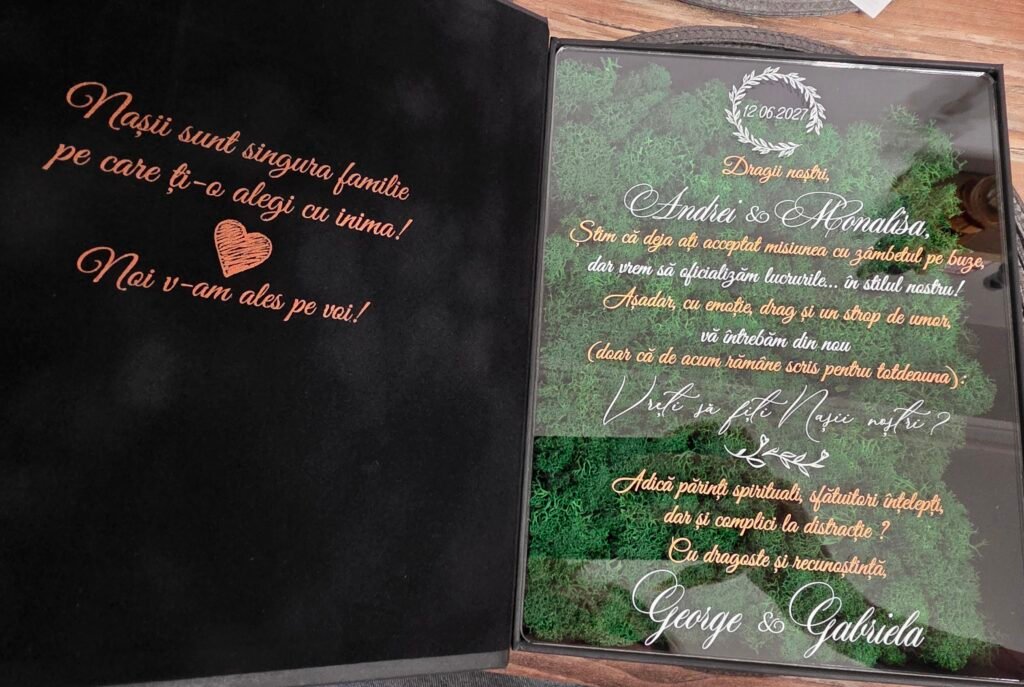 Nașii sunt singura familie
pe care ți-o alegi cu inima!
Noi v-am ales pe voi!
12.06.2027
Dragii noștri,
Andrei & Monalisa,
Știm că deja ați acceptat misiunea cu zâmbetul pe buze,
dar vrem să oficializăm lucrurile... în stilul nostru!
Așadar, cu emoție, drag și un strop de umor,
vă întrebăm din nou
(doar că de acum rămâne scris pentru totdeauna):
Vreți să fiți Nașii noștri?
Adică părinți spirituali, sfătuitori înțelepți,
dar și complici la distracție ?
Cu dragoste și recunoștință,
George & Gabriela